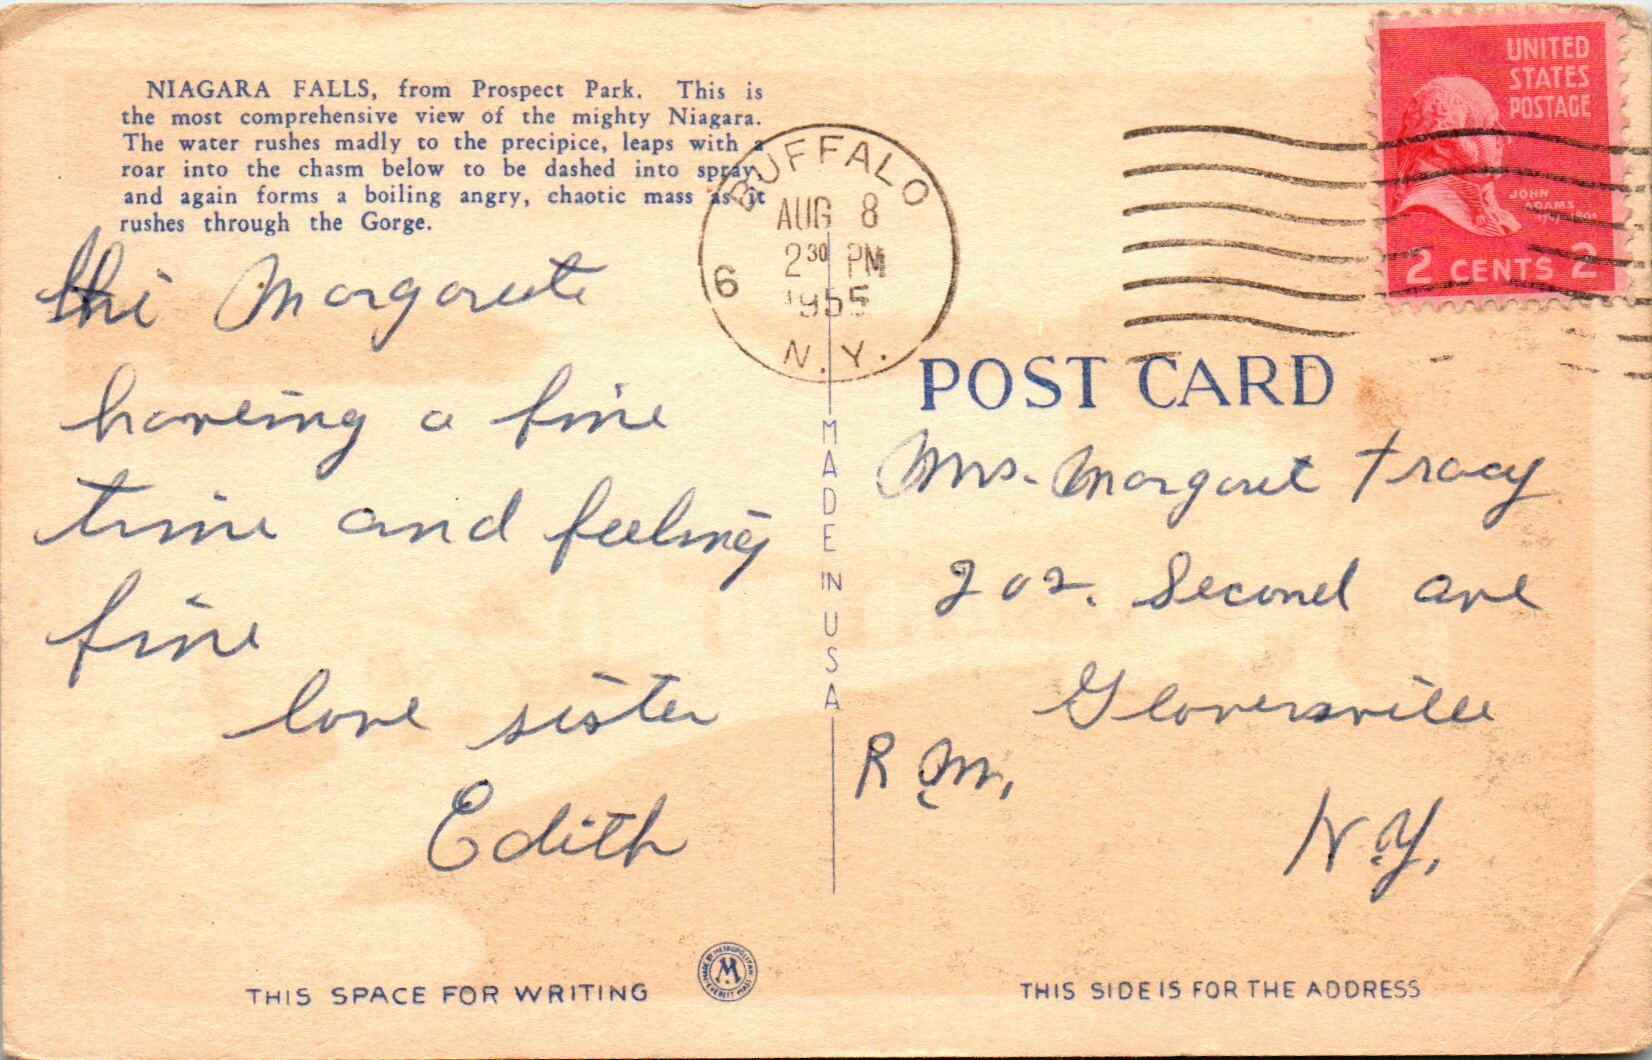 NIAGARA FALLS, from Prospect Park. This is
the most comprehensive view of the mighty Niagara.
The water rushes madly to the precipice, leaps with a
roar into the chasm below to be dashed into spray,
and again forms a boiling angry, chaotic mass as it
rushes through the Gorge.
BUFFALO
AUG 8
2 30 PM
1955
6
N.Y.
UNITED
STATES
POSTAGE
JOHN
ADAMS
2 CENTS 2
Hi Margarete
haveing a fine
time and feeling
fine
love sister
Edith
MADE IN USA
POST CARD
Mrs. Margaret Tracy
202. Second ave
Gloversville
R.M.
N.Y.
THIS SPACE FOR WRITING
MADE BY METROPOLITAN
M
EVERETT MASS
THIS SIDE IS FOR THE ADDRESS